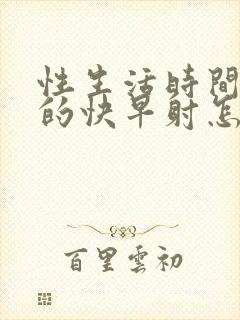 性生活時間
的快早射怎
百里雲初